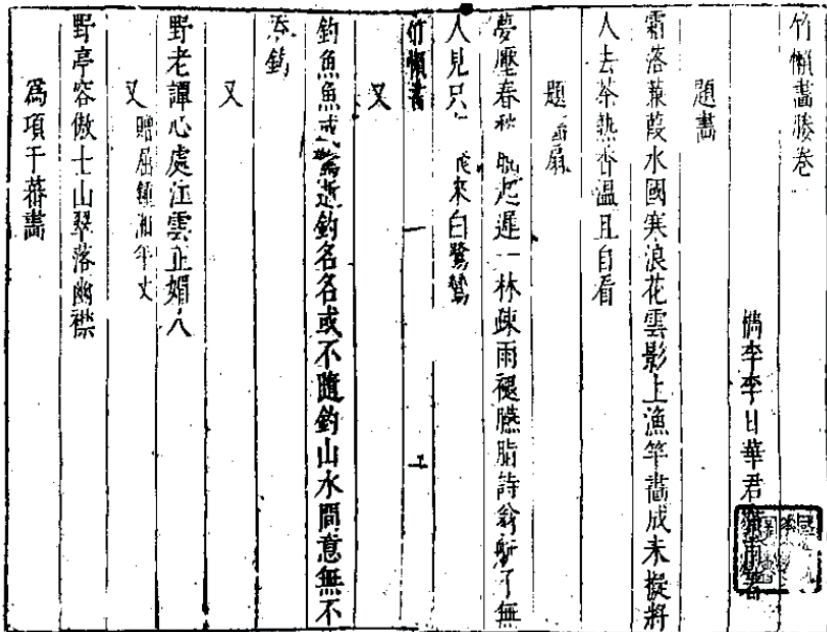 竹懶畫媵卷
檇李李日華君實甫著
題畫
霜落蒹葭水國寒浪花雲影上漁竿畵成未擬將
人去茶熟香溫且自看
題畫扇
夢壓春起遲一林疎雨褪臙脂詩翁了無
人見只來白鷺鷥
竹懶畫 一
又
釣魚魚或驚逝釣名名或不隨釣山水間意無不
又
野老譚心處江雲正媚人
又 贈屈湘年丈
野亭容傲士山翠落幽襟
為項于蕃畵